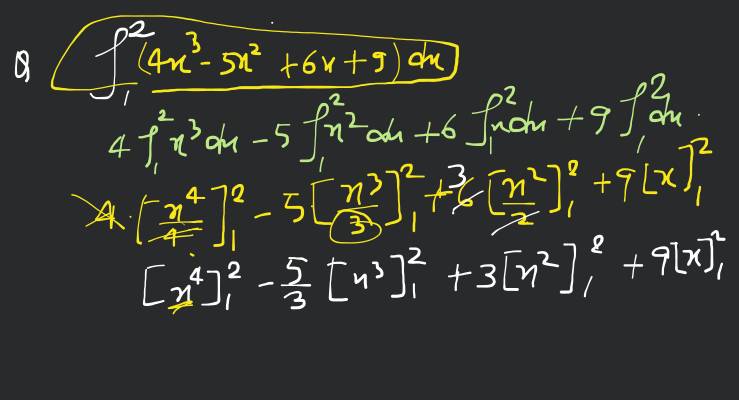 Q ∫₁² (4x³ - 5x² + 6x + 9) dx
4 ∫₁² x³ dx - 5 ∫₁² x² dx + 6 ∫₁² x dx + 9 ∫₁² dx.
4. [x⁴/4]₁² - 5 [x³/3]₁² + 6 3 [x²/2]₁² + 9 [x]₁²
[x⁴]₁² - 5/3 [x³]₁² + 3 [x²]₁² + 9 [x]₁²